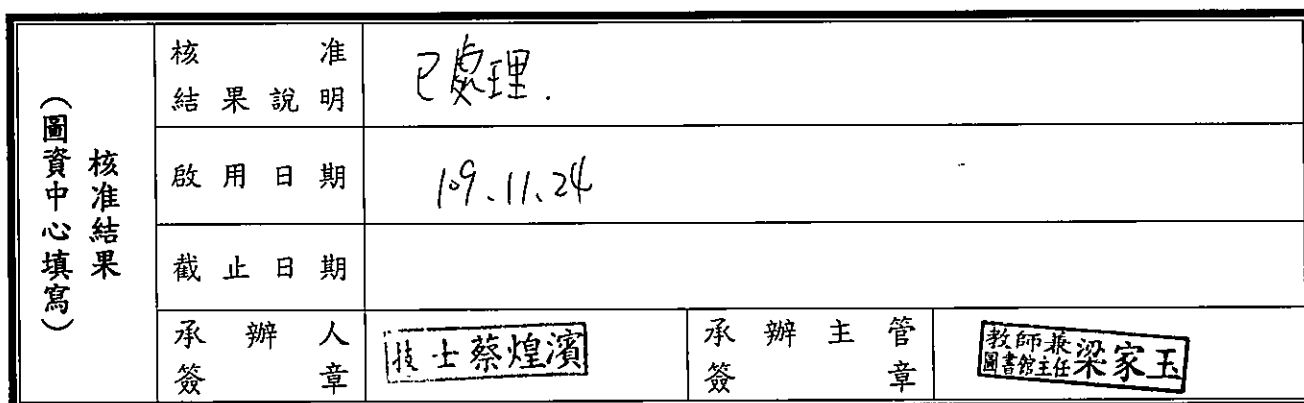 核准結果
(圖資中心填寫)
核准
結果說明
已處理.
啟用日期
109.11.24
截止日期
承辦人
簽章
技士蔡煌濱
承辦主管
簽章
教師兼
圖書館主任
梁家玉